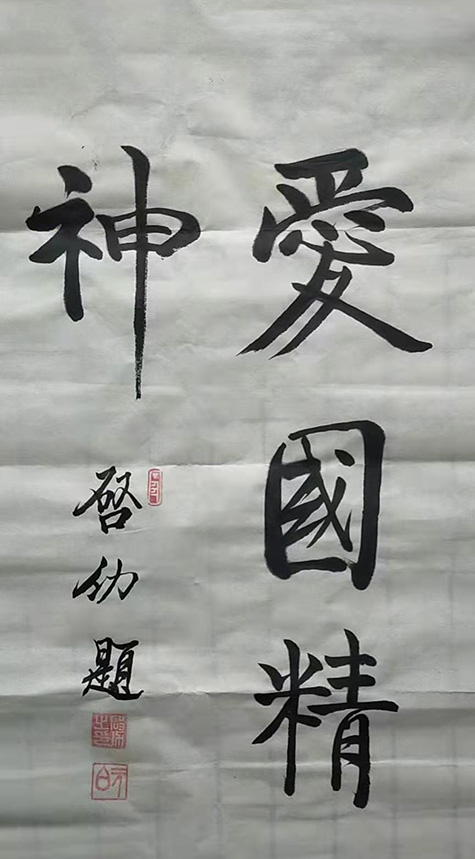 愛國精
神
啓幼題